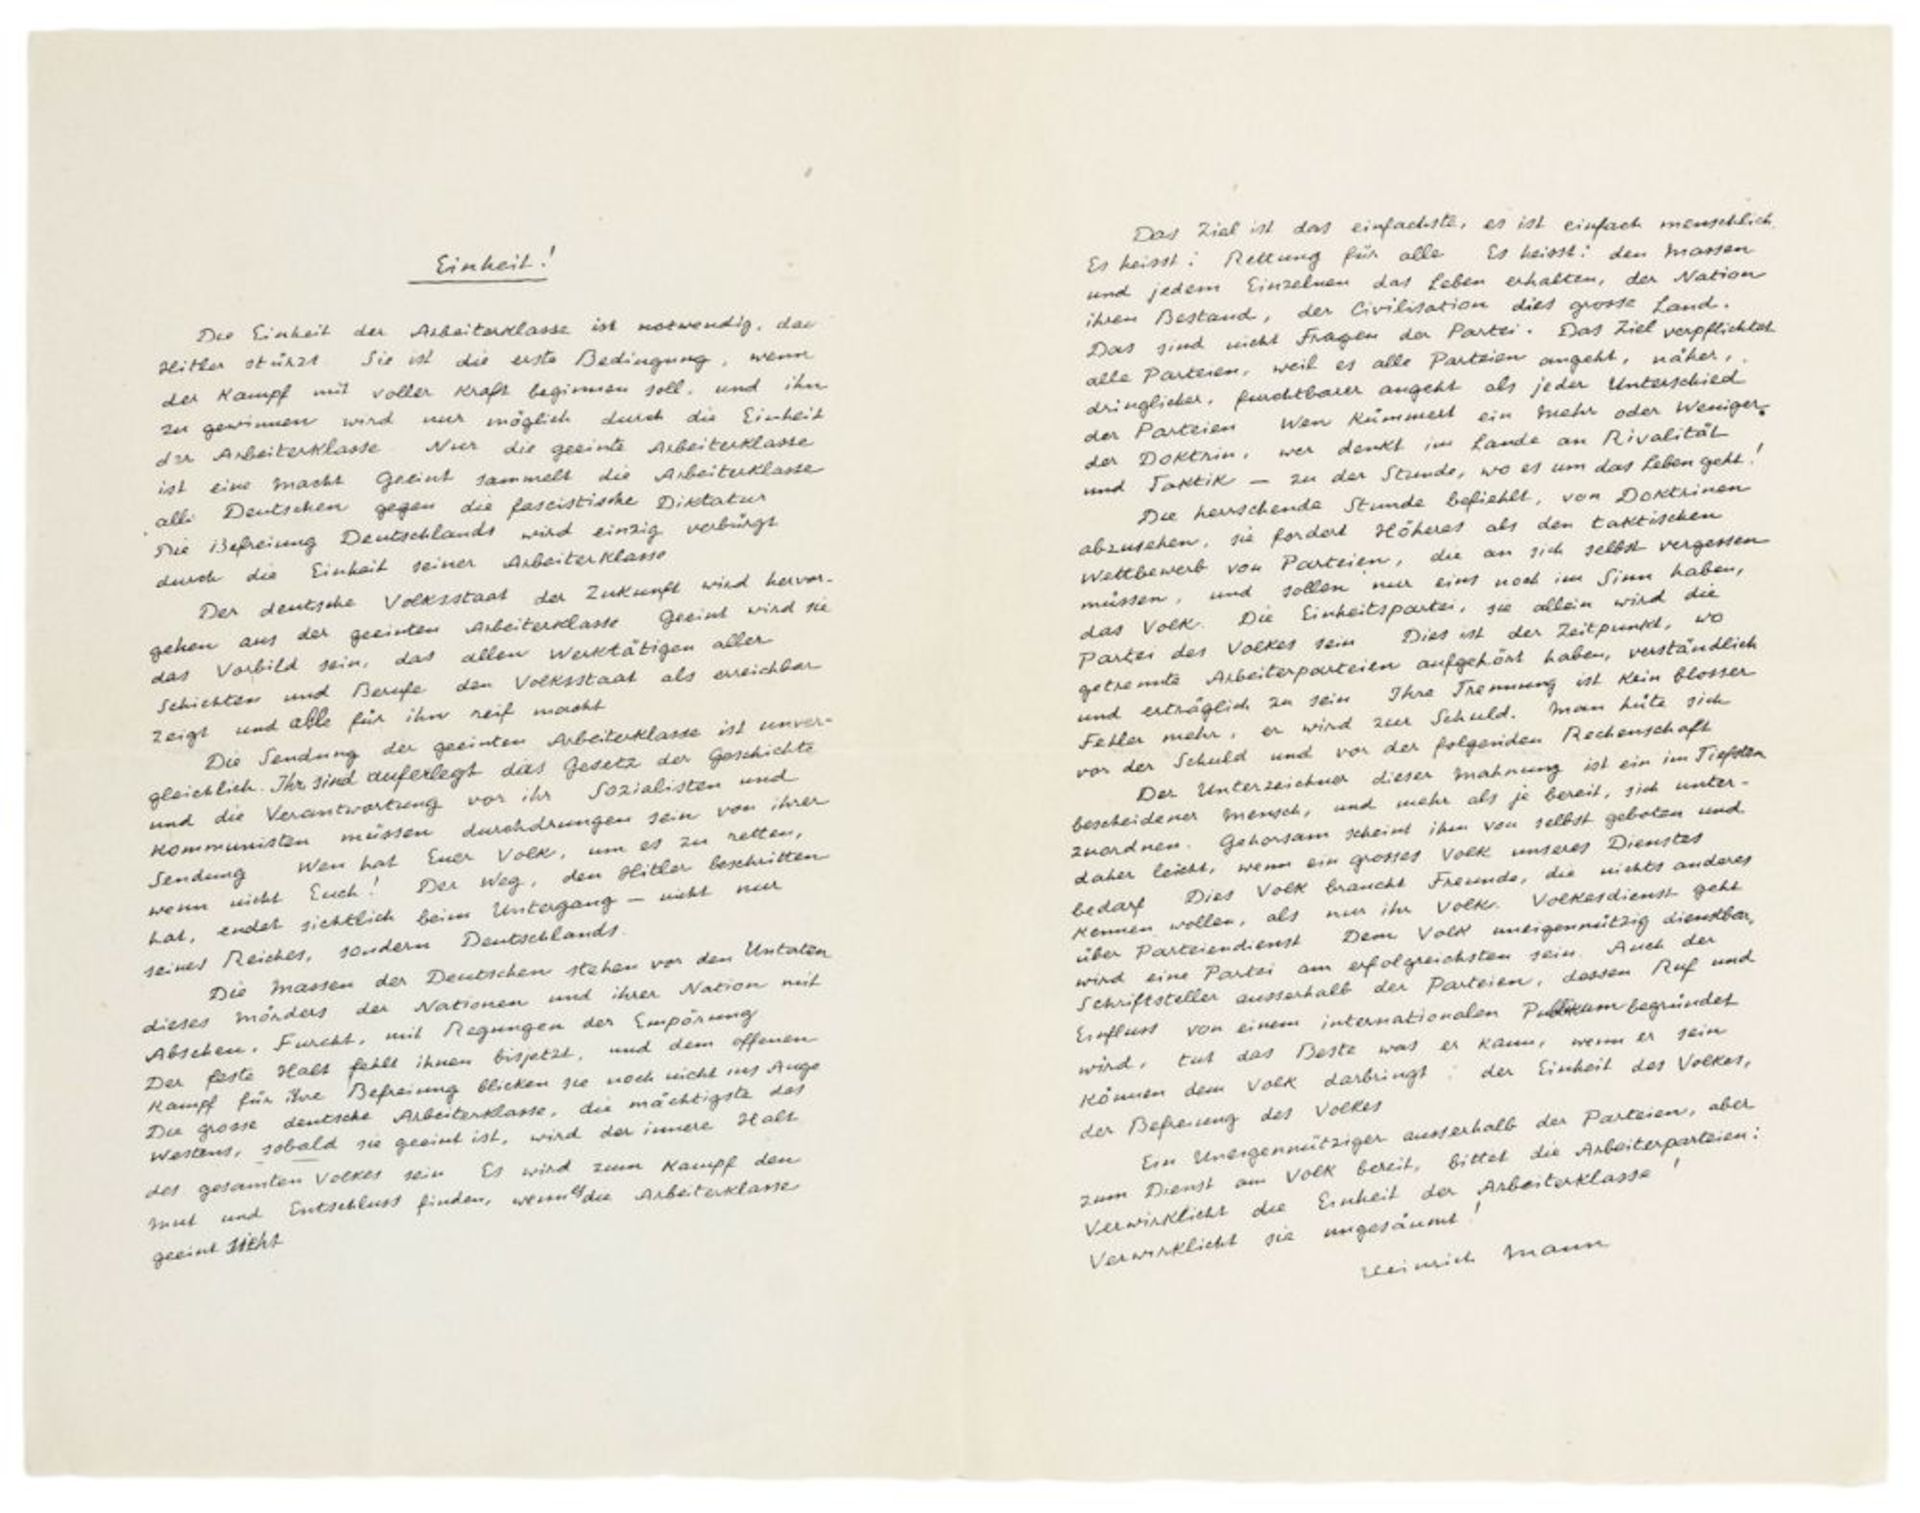 Einheit!
Die Einheit der Arbeiterklasse ist notwendig, das
Hitler stürzt. Sie ist die erste Bedingung, wenn
der Kampf mit voller Kraft beginnen soll, und ihn
zu gewinnen wird nur möglich durch die Einheit
der Arbeiterklasse. Nur die geeinte Arbeiterklasse
ist eine Macht. Geeint sammelt die Arbeiterklasse
alle Deutschen gegen die fascistische Diktatur.
Die Befreiung Deutschlands wird einzig verbürgt
durch die Einheit seiner Arbeiterklasse.
Der deutsche Volksstaat der Zukunft wird hervor-
gehen aus der geeinten Arbeiterklasse. Geeint wird sie
das Vorbild sein, das allen Werktätigen aller
Schichten und Berufe den Volksstaat als erreichbar
zeigt und alle für ihn reif macht.
Die Sendung der geeinten Arbeiterklasse ist unver-
gleichlich. Ihr sind auferlegt das Gesetz der Geschichte
und die Verantwortung vor ihr. Sozialisten und
Kommunisten müssen durchdrungen sein von ihrer
Sendung. Wen hat Euer Volk, um es zu retten,
wenn nicht Euch! Der Weg, den Hitler beschritten
hat, endet sichtlich beim Untergang — nicht nur
seines Reiches, sondern Deutschlands.
Die Massen der Deutschen stehen vor den Untaten
dieses Mörders der Nationen und ihrer Nation mit
Abscheu, Furcht, mit Regungen der Empörung.
Der feste Halt fehlt ihnen bisjetzt, und dem offenen
Kampf für ihre Befreiung blicken sie noch nicht ins Auge.
Die grosse deutsche Arbeiterklasse, die mächtigste des
Westens, sobald sie geeint ist, wird der innere Halt
des gesamten Volkes sein. Es wird zum Kampf den
Mut und Entschluss finden, wenn es die Arbeiterklasse
geeint sieht.
Das Ziel ist das einfachste, es ist einfach menschlich.
Es heisst: Rettung für alle. Es heisst: den Massen
und jedem Einzelnen das Leben erhalten, der Nation
ihren Bestand, der Civilisation dies grosse Land.
Das sind nicht Fragen der Partei. Das Ziel verpflichtet
alle Parteien, weil es alle Parteien angeht, näher,
dringlicher, furchtbarer angeht als jeder Unterschied
der Parteien. Wen kümmert ein Mehr oder Weniger
der Doktrin, wer denkt im Lande an Rivalität
und Taktik — zu der Stunde, wo es um das Leben geht!
Die herrschende Stunde befiehlt, von Doktrinen
abzusehen, sie fordert Höheres als den taktischen
Wettbewerb von Parteien, die an sich selbst vergessen
müssen, und sollen nur eins noch im Sinn haben,
das Volk. Die Einheitspartei, sie allein wird die
Partei des Volkes sein. Dies ist der Zeitpunkt, wo
getrennte Arbeiterparteien aufgehört haben, verständlich
und erträglich zu sein. Ihre Trennung ist kein blosser
Fehler mehr, er wird zur Schuld. Man hüte sich
vor der Schuld und vor der folgenden Rechenschaft.
Der Unterzeichner dieser Mahnung ist ein im Tiefsten
bescheidener Mensch, und mehr als je bereit, sich unter-
zuordnen. Gehorsam scheint ihm von selbst geboten und
daher leicht, wenn ein grosses Volk unseres Dienstes
bedarf. Dies Volk braucht Freunde, die nichts anderes
kennen wollen, als nur ihr Volk. Volkesdienst geht
über Parteiendienst. Dem Volk uneigennützig dienstbar,
wird eine Partei am erfolgreichsten sein. Auch der
Schriftsteller ausserhalb der Parteien, dessen Ruf und
Einfluss von einem internationalen Publikum begründet
wird, tut das Beste was er kann, wenn er sein
Können dem Volk darbringt: der Einheit des Volkes,
der Befreiung des Volkes.
Ein Uneigennütziger ausserhalb der Parteien, aber
zum Dienst am Volk bereit, bittet die Arbeiterparteien:
Verwirklicht die Einheit der Arbeiterklasse!
Verwirklicht sie ungesäumt!
Heinrich Mann